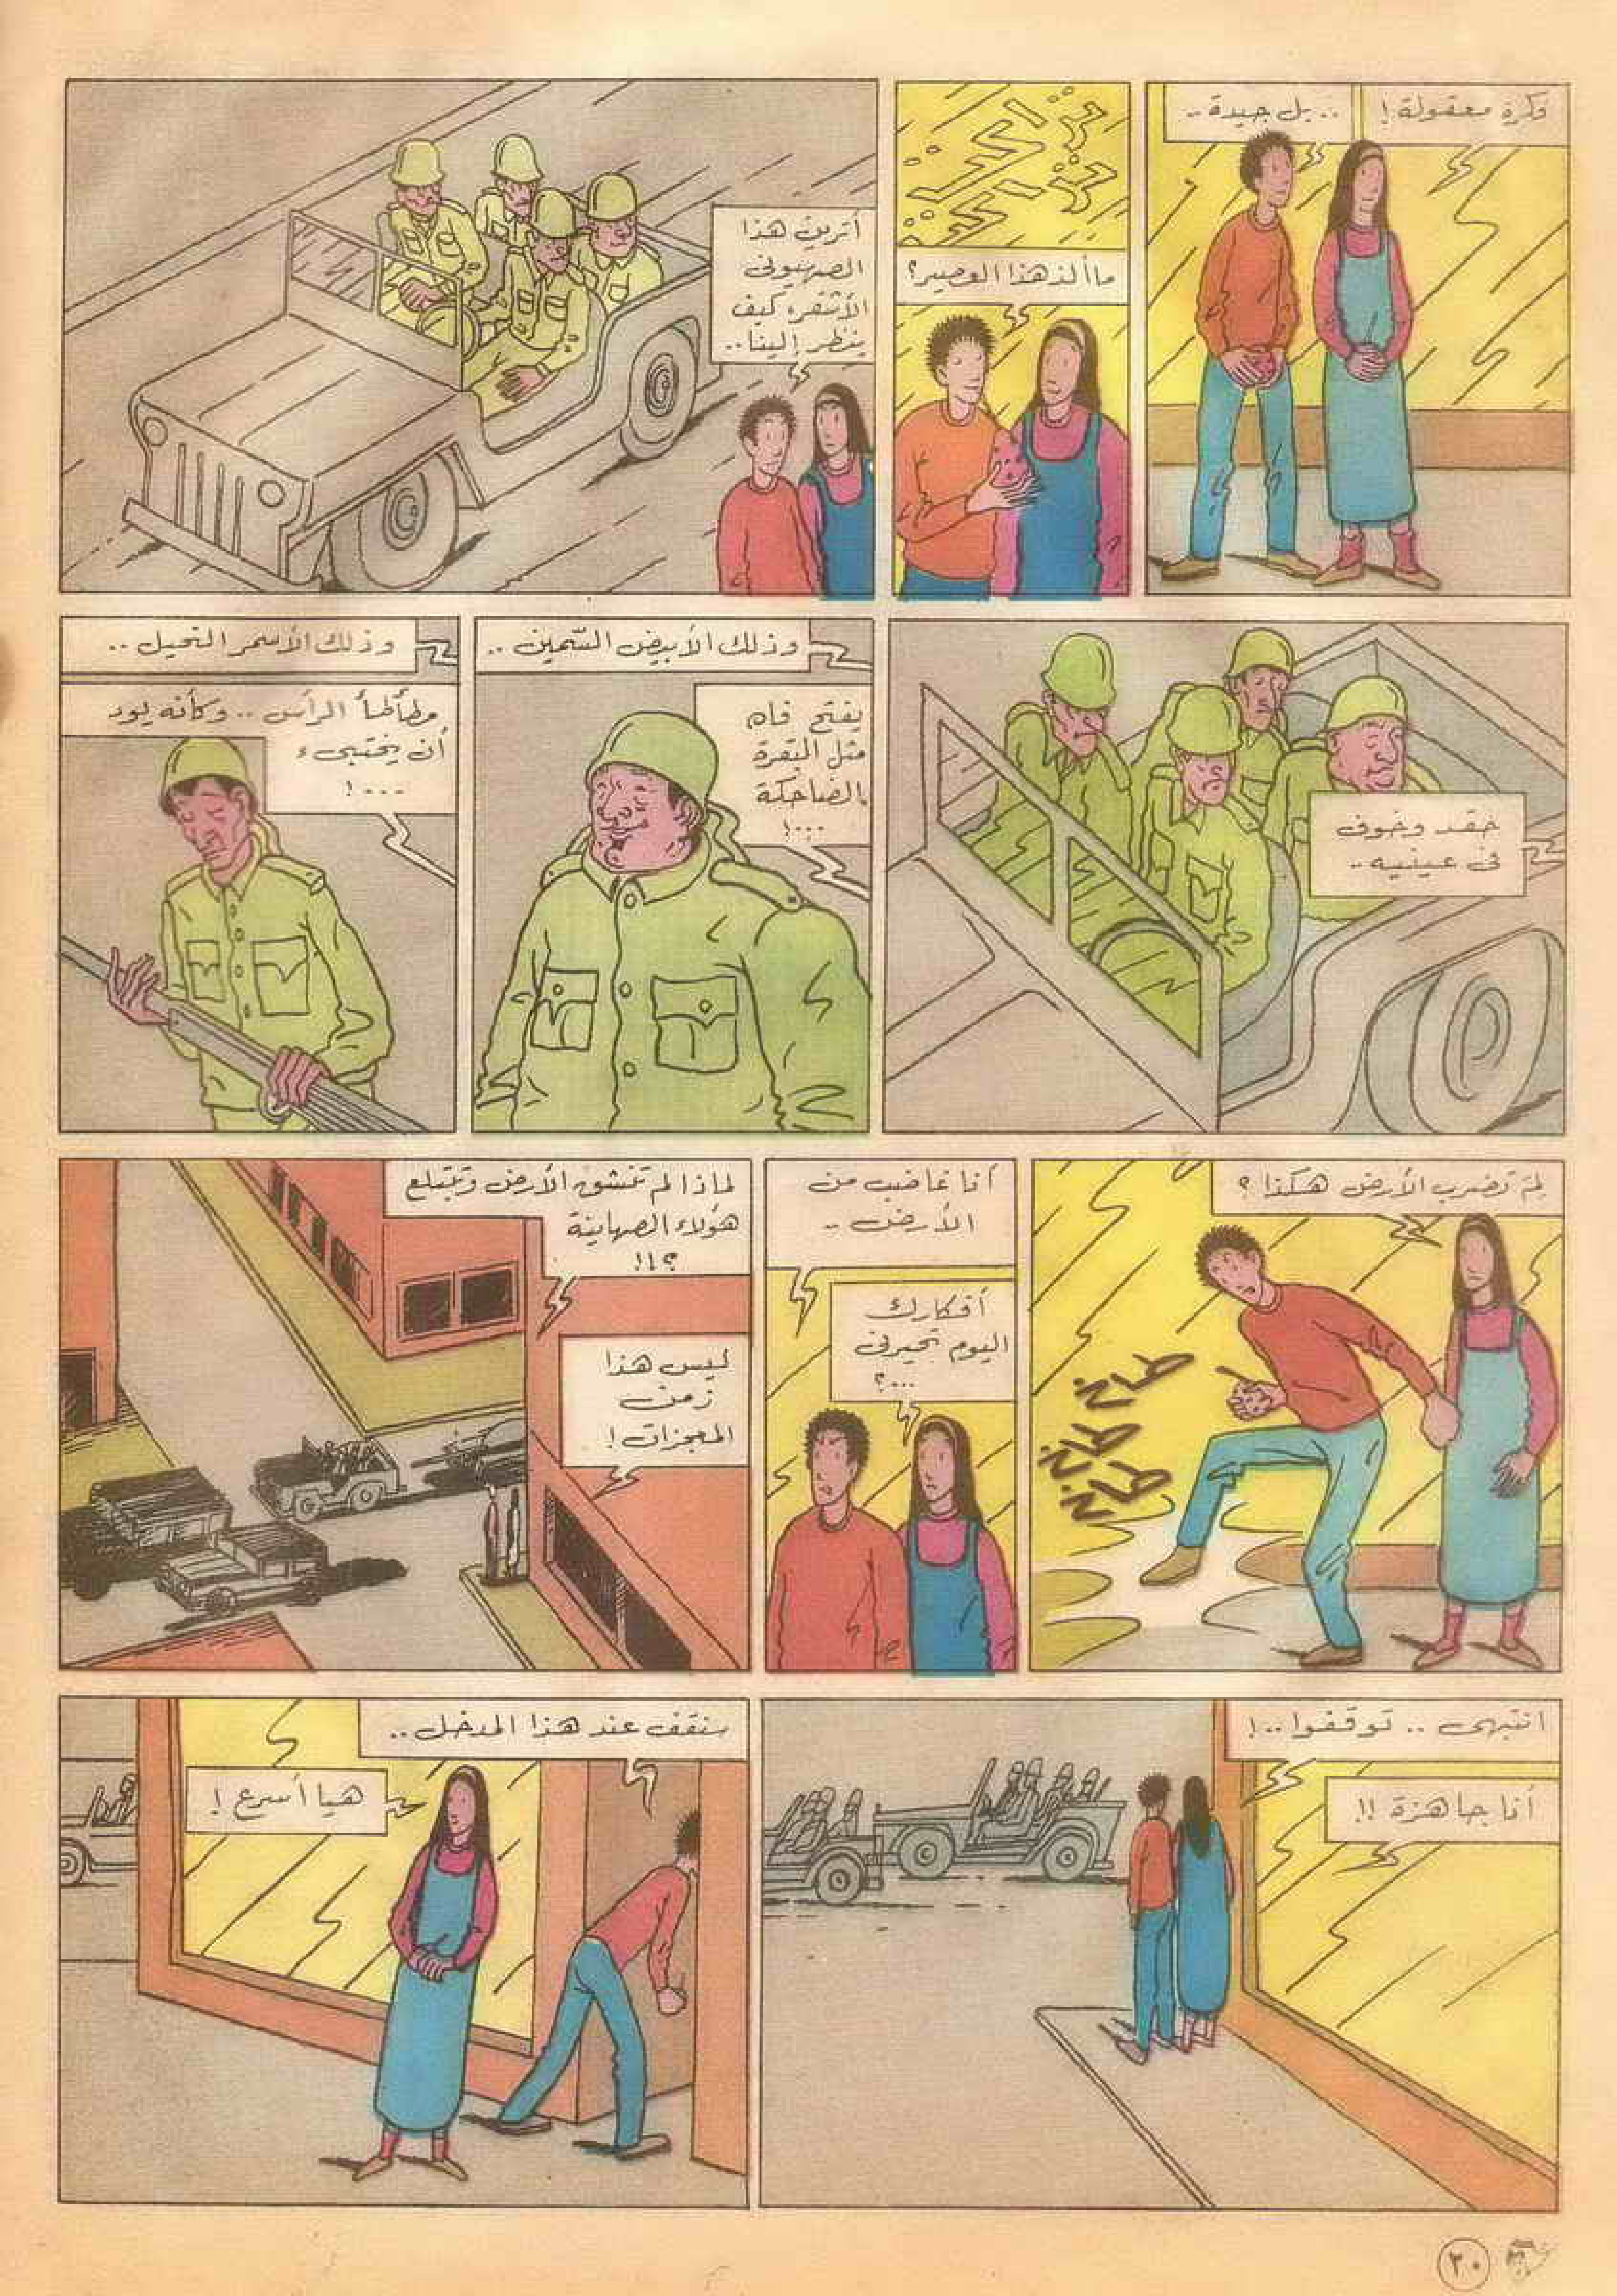 فكرة معقولة!
.. بل جيدة..
ما ألذ هذا العصير؟
أترين هذا
الصهيوني
الأشقر، كيف
ينظر إلينا..
حقد وخوف
في عينيه..
وذلك الأبيض السّمين ..
يفتح فاه
مثل البقرة
الضاحكة
...!
وذلك الأسمر النحيل ..
مطأطأ الرأس .. وكأنه يود
أن يختبىء
...!
لمَ تضرب الأرض هكذا ؟
طاخ
طاخ
طاخ
أنا غاضب من
الأرض ..
أفكارك
اليوم تحيرني
...؟
لماذا لم تنشق الأرض وتبتلع
هؤلاء الصهاينة
؟!!
ليس هذا
زمن
المعجزات!
انتبهى .. توقفوا ..!
أنا جاهزة !!
سنقف عند هذا المدخل ..
هيا أسرع !
٢٠